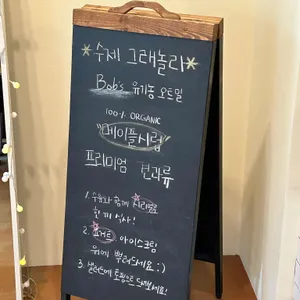 *수제 그래놀라*
Bob's 유기농 오트밀
100% ORGANIC
"메이플시럽"
프리미엄 견과류
1. 우유와 함께 시리얼로
한끼 식사!
2. 요거트, 아이스크림
위에 뿌려드세요:)
3. 샐러드에 토핑으로 드셔보세요!